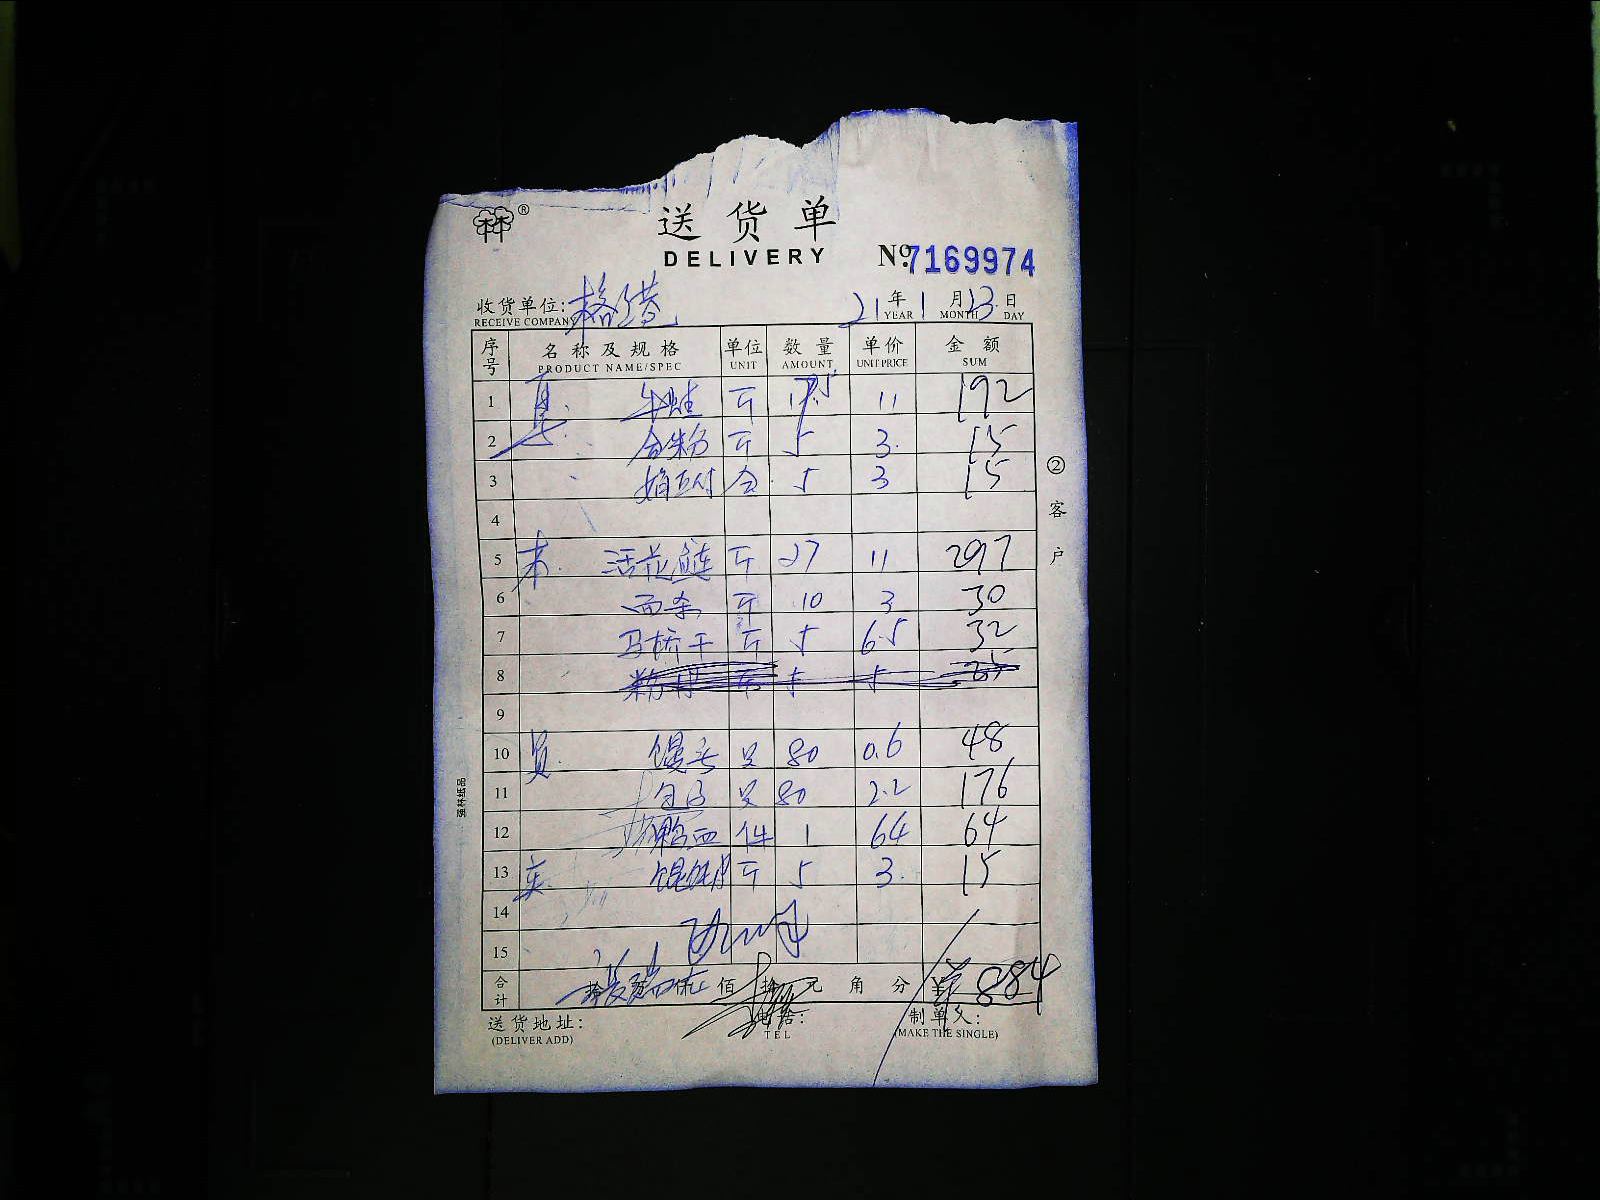 林林®
送货单
DELIVERY
№7169974
收货单位:
RECEIVE COMPANY
21年1月23日
YEAR MONTH DAY
序号 名称及规格 单位 数量 单价 金额
PRODUCT NAME/SPEC UNIT AMOUNT UNIT PRICE SUM
1 牛蛙 斤 17.5 11 192
2 合粉 斤 5 3. 15
3 5 3 15
4
5 本. 活花鲢 斤 27 11 297
6 面条 斤 10 3 30
7 马桥干 斤 5 6.5 32
8 粉 斤 5 5 25
9
10 馒头 只 80 0.6 48
11 包子 只 80 2.2 176
12 鸭血 件 1 64 64
13 馄饨皮 斤 5 3. 15
14
15
合计 拾 仟 佰 拾 元 角 分 ¥ 884
送货地址:
(DELIVER ADD)
电话:
TEL
制单人:
(MAKE THE SINGLE)
②客户
强林纸品